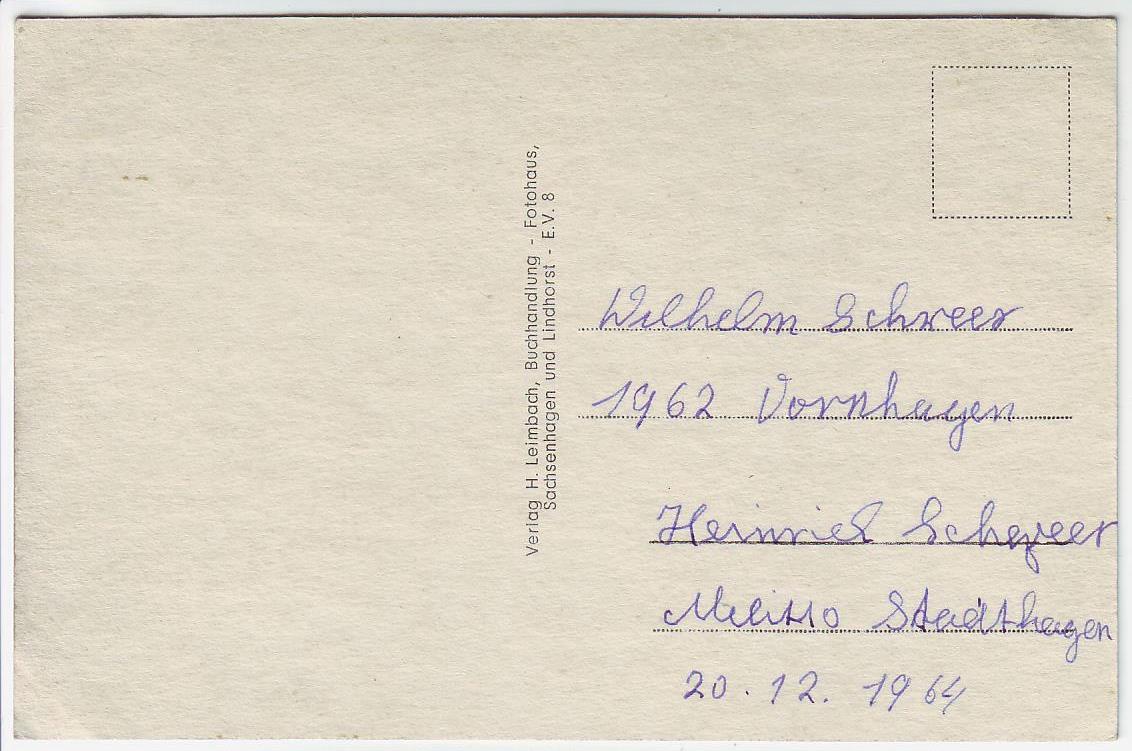 Verlag H. Leimbach, Buchhandlung - Fotohaus,
Sachsenhagen und Lindhorst - E.V. 8
Wilhelm Schweer
1962 Vornhagen
Heinrich Schweer
Stadthagen
20.12.1964